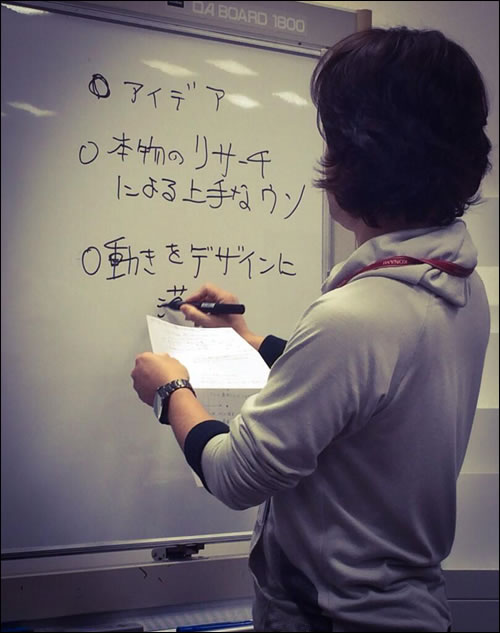 QA BOARD 1800
○ アイデア
○ 本物のリサーチ
による上手なウソ
○ 動きをデザインに
落
KONAMI